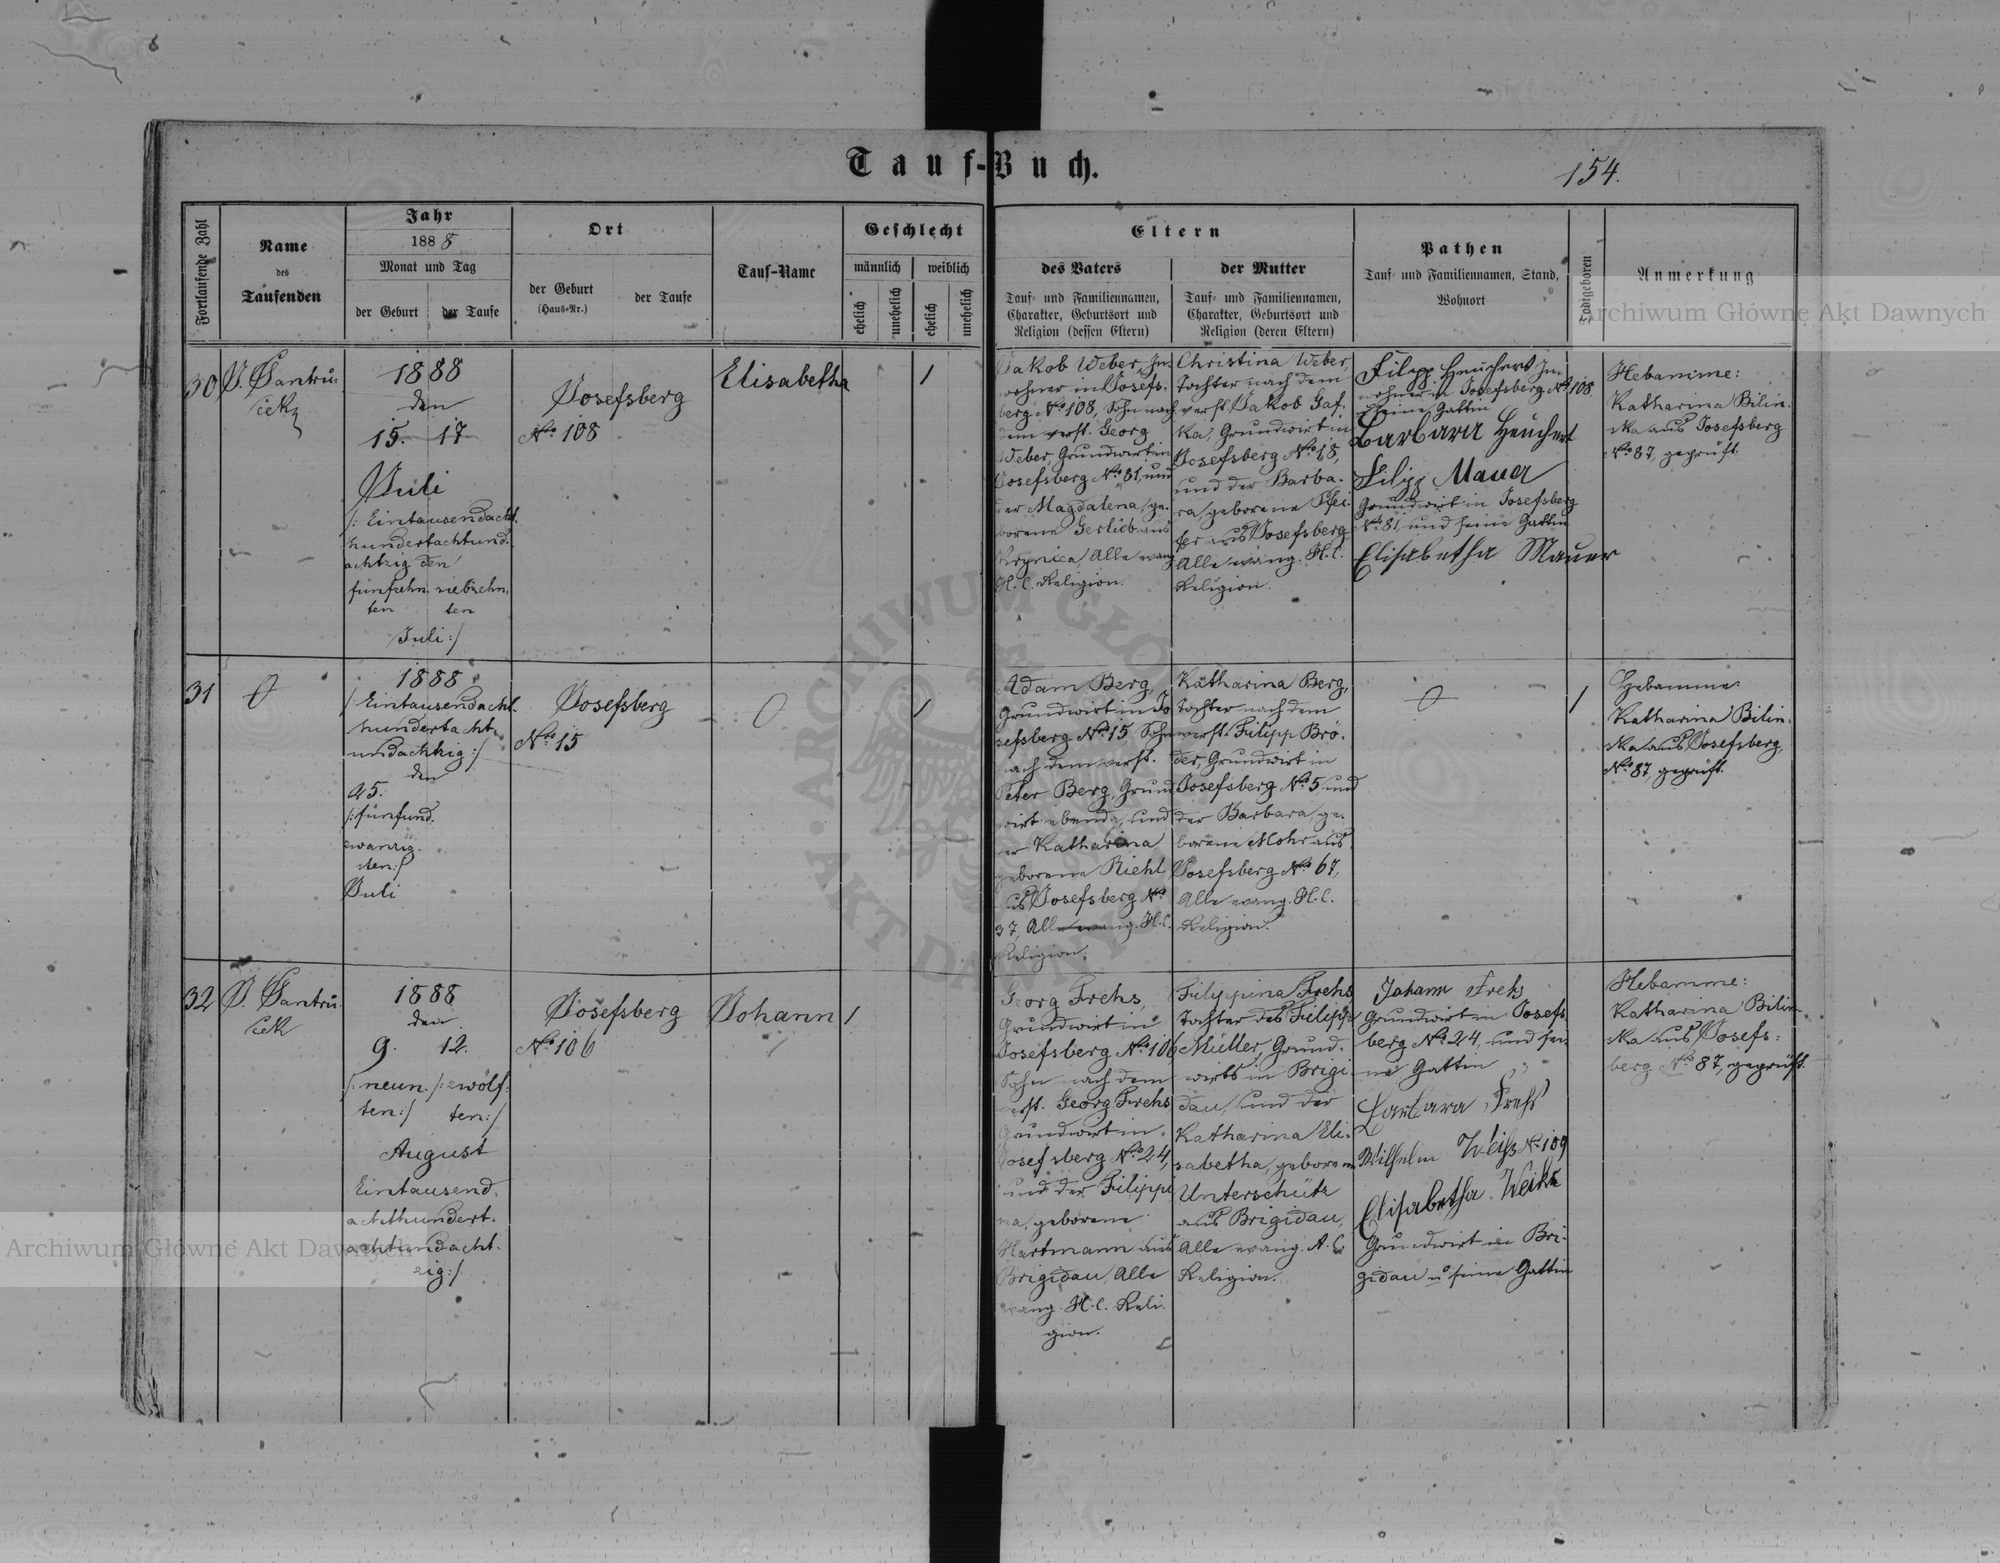 Tauf-Buch.
154.
Fortlaufende Zahl
Name
des
Taufenden
Jahr
1888
Monat und Tag
der Geburt
der Taufe
Ort
der Geburt
(Haus-Nr.)
der Taufe
Tauf-Name
Geschlecht
männlich
weiblich
ehelich
unehelich
ehelich
unehelich
Eltern
des Vaters
Tauf- und Familiennamen,
Charakter, Geburtsort und
Religion (dessen Eltern)
der Mutter
Tauf- und Familiennamen,
Charakter, Geburtsort und
Religion (deren Eltern)
Pathen
Tauf- und Familiennamen, Stand,
Wohnort
Todtgeboren
Anmerkung
30
J. Jantrů-
ček
1888
den
15. 17
Juli
/: Eintausendacht-
hundertachtund-
achtzig den
fünfzehn- siebzehn-
ten ten
Juli :/
Josefsberg
No. 108
Elisabetha
1
Jakob Weber, In-
wohner in Josefs-
berg No. 108, Sohn nach
dem verst. Georg
Weber, Grundwirt in
Josefsberg No. 81, und
der Magdalena, ge-
borene Gerlieb aus
Krynica, Alle evang.
H. C. Religion.
Christina Weber,
Tochter nach dem
verst. Jakob Gaf-
ka, Grundwirt in
Josefsberg No. 18,
und der Barba-
ra, geborene Pfei-
fer aus Josefsberg
Alle evang. H. C.
Religion.
Filipp Heuchert In-
wohner in Josefsberg No 108
seine Gattin
Barbara Heuchert
Filipp Mauer
Grundwirt in Josefsberg
No. 81 und seine Gattin
Elisabetha Mauer
Hebamme:
Katharina Bilin-
ska aus Josefsberg
No. 87, geprüft.
31
0
1888
/: Eintausendacht-
hundertacht-
undachtzig :/
den
25.
/: fünfund-
zwanzig-
sten :/
Juli
Josefsberg
No. 15
0
1
Adam Berg,
Grundwirt in Jo-
sefsberg No. 15 Sohn
nach dem verst.
Peter Berg, Grund-
wirt ebenda, und
der Katharina
geborene Riehl
aus Josefsberg No
37, Alle evang. H. C.
Religion.
Katharina Berg,
Tochter nach dem
verst. Filipp Brö-
der, Grundwirt in
Josefsberg No. 5 und
der Barbara, ge-
borene Mohr aus
Josefsberg No. 67,
Alle evang. H. C.
Religion.
0
1
Hebamme
Katharina Bilin-
ska aus Josefsberg,
No. 87, geprüft.
32
J. Jantrů-
ček
1888
den
9. 12.
/: neun- /: zwölf-
ten :/ ten :/
August
Eintausend-
achthundert-
achtundacht-
zig :/
Josefsberg
No. 106
Johann
1
Georg Frehs,
Grundwirt in
Josefsberg No. 106
Sohn nach dem
verst. Georg Frehs
Grundwirt in
Josefsberg No. 24,
und der Filippi-
na, geborene
Hartmann aus
Brigidau, Alle
evang. H. C. Reli-
gion.
Filippina Frehs
Tochter des Filipp
Müller, Grund-
wirts in Brigi-
dau, und der
Katharina Eli-
sabetha, geborene
Unterschütz
aus Brigidau,
Alle evang. A. C.
Religion.
Johann Frehs
Grundwirt in Josefs
berg No. 24, und sei-
ne Gattin
Barbara Frehs
Wilhelm Weiss No. 109
Elisabetha
Grundwirt in Bri-
gidau u. seine Gattin
Hebamme:
Katharina Bilin-
ska aus Josefs-
berg No. 87, geprüft.
Archiwum Główne Akt Dawnych
Archiwum Główne Akt Dawnych
ARCHIWUM GŁÓWNE AKT DAWNYCH